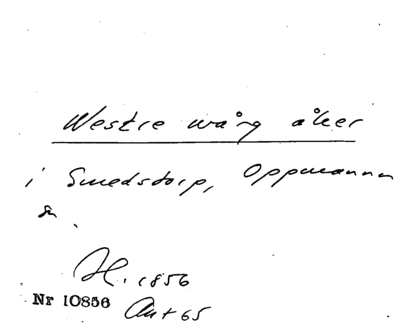 Westre wång åker
i Smedstorp, Oppmanna
sn.
H. 1856
Nr 10856 Ant 65